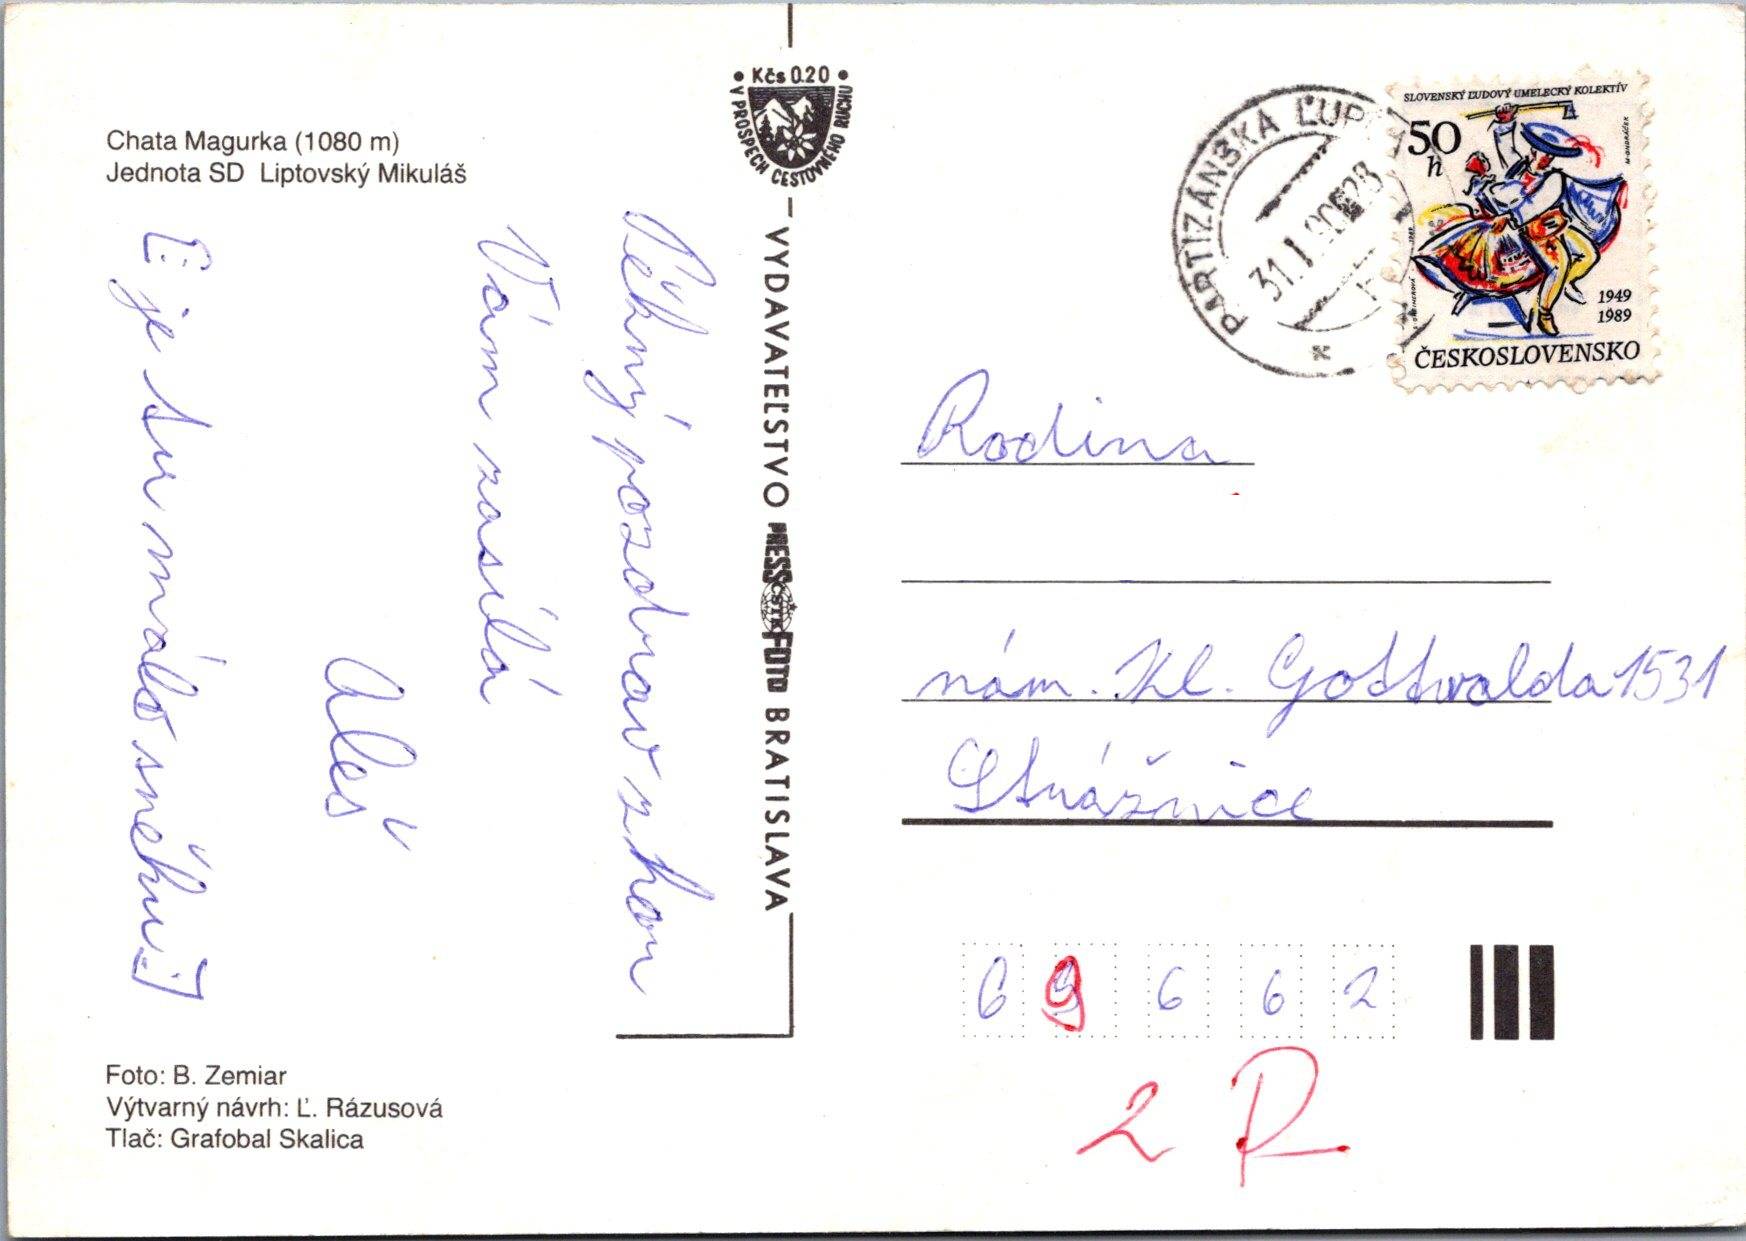 Chata Magurka (1080 m)
Jednota SD Liptovský Mikuláš
Pěkný pozdrav z hor
Vám zasílá
Aleš
[: je tu málo sněhu :]
Foto: B. Zemiar
Výtvarný návrh: Ľ. Rázusová
Tlač: Grafobal Skalica
• Kčs 0.20 •
V PROSPECH CESTOVNÉHO RUCHU
VYDAVATEĽSTVO PRESSFOTO BRATISLAVA
ČSTK
PARTIZÁNSKA ĽUPČA
31.1.90
SLOVENSKÝ ĽUDOVÝ UMELECKÝ KOLEKTÍV
50 h
M. ONDRÁČEK
1949
1989
ČESKOSLOVENSKO
Rodina
nám. Kl. Gottwalda 1531
Strážnice
6 9 6 6 2
2 R